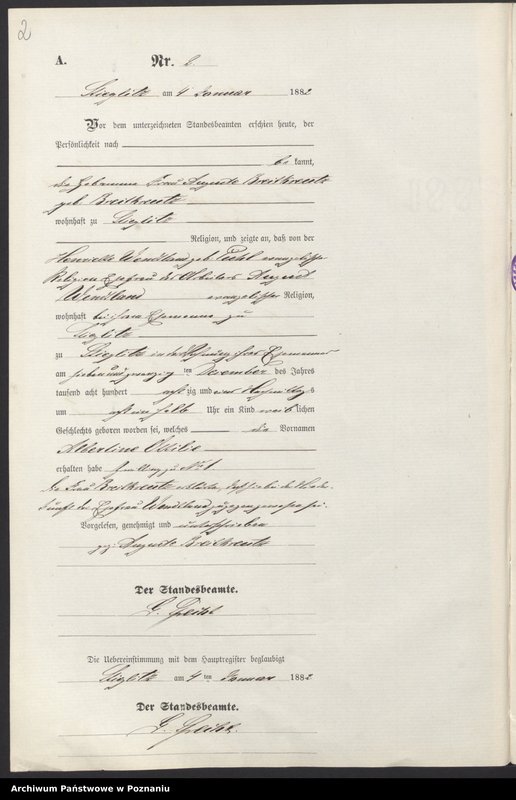 2
A. Nr. 2.
Stieglitz am 4 Januar 1882
Vor dem unterzeichneten Standesbeamten erschien heute, der
Persönlichkeit nach
be kannt,
die Hebamme Frau Auguste Breitkreutz
geb. Breitkreutz
wohnhaft zu Stieglitz
Religion, und zeigte an, daß von der
Henriette Wendland geb. evangelischer
Religion Ehefrau des Arbeiters August
Wendland evangelischer Religion,
wohnhaft bei ihrem Ehemanne zu
Stieglitz
zu Stieglitz in der Wohnung ihres Ehemannes
am sieben und zwanzig ten Dezember des Jahres
tausend acht hundert acht zig und eins Nachmittags
um acht ein halb Uhr ein Kind weib lichen
Geschlechts geboren worden sei, welches die Vornamen
Albertine Ottilie
erhalten habe
Die Frau Breitkreutz erklärte, daß sie bei der Nieder-
kunft der Ehefrau Wendland zugegen gewesen sei.
Vorgelesen, genehmigt und unterschrieben
gez. Auguste Breitkreutz
Der Standesbeamte.
Die Uebereinstimmung mit dem Hauptregister beglaubigt
Stieglitz am 4 ten Januar 1882
Der Standesbeamte.
Archiwum Państwowe w Poznaniu